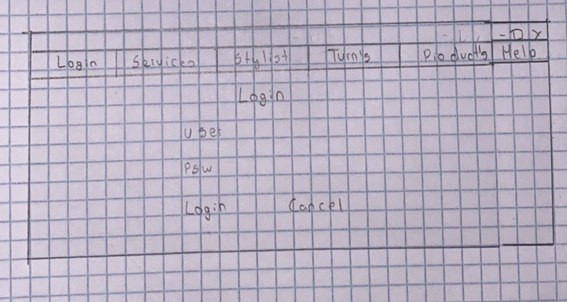 - □ X
Login Services Stylist Turn's Product's Help
Login
User
PSW
Login Cancel